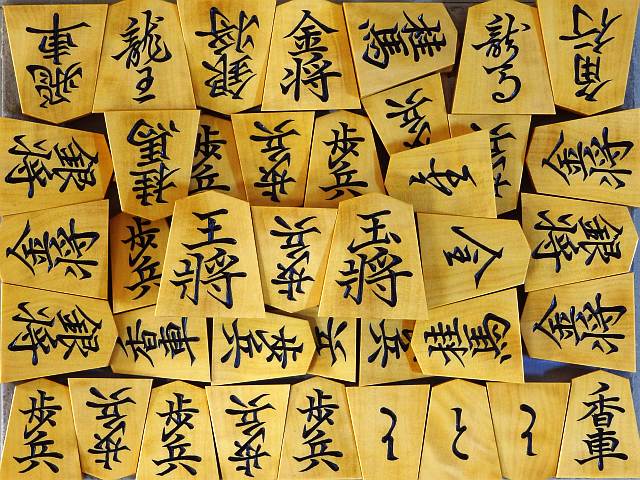 飛車 龍王 銀将 金将 桂馬 龍馬 角行
銀将 桂馬 歩兵 歩兵 歩兵 歩兵 歩兵 金将
金将 歩兵 王将 歩兵 玉将 銀将
銀将 歩兵 兵 金将
歩兵 歩兵 歩兵 歩兵 歩兵 と と と 香車